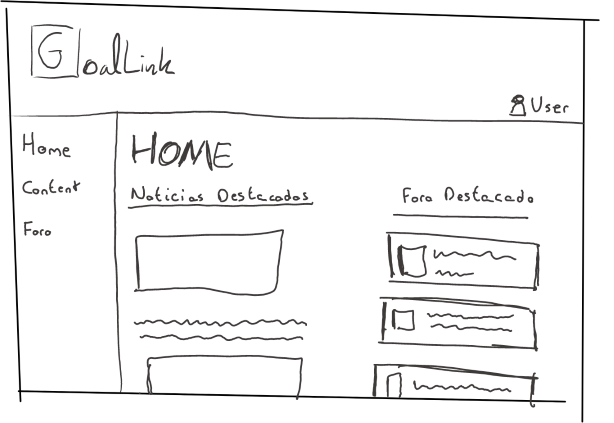 GoalLink
User
Home
Content
Foro
HOME
Noticias Destacados
Foro Destacado